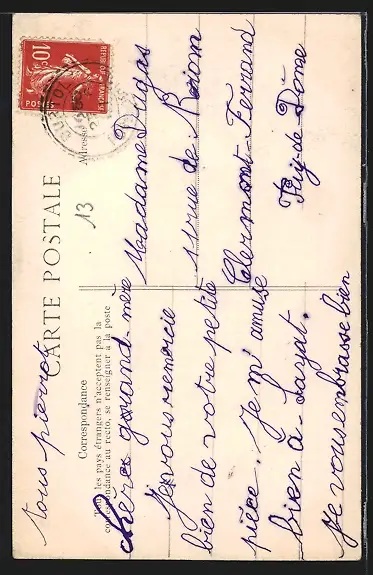 CARTE POSTALE
Correspondance
Tous les pays étrangers n'acceptent pas la
correspondance au recto, se renseigner à la poste
Adresse
REPUBLIQUE FRANÇAISE
10c
POSTES
13
Madame Dugas
rue de Riom
Clermont-Ferrand
Puy-de-Dôme
chère grand-mère
Je vous remercie
bien de votre petite
pièce. Je m'amuse
bien à Lazat.
Je vous embrasse bien
tous pierrot